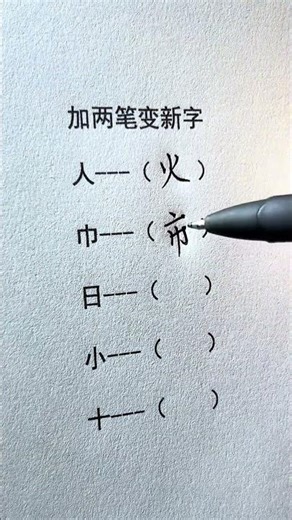 加两笔变新字
人---（火）
巾---（市）
日---（ ）
小---（ ）
十---（ ）